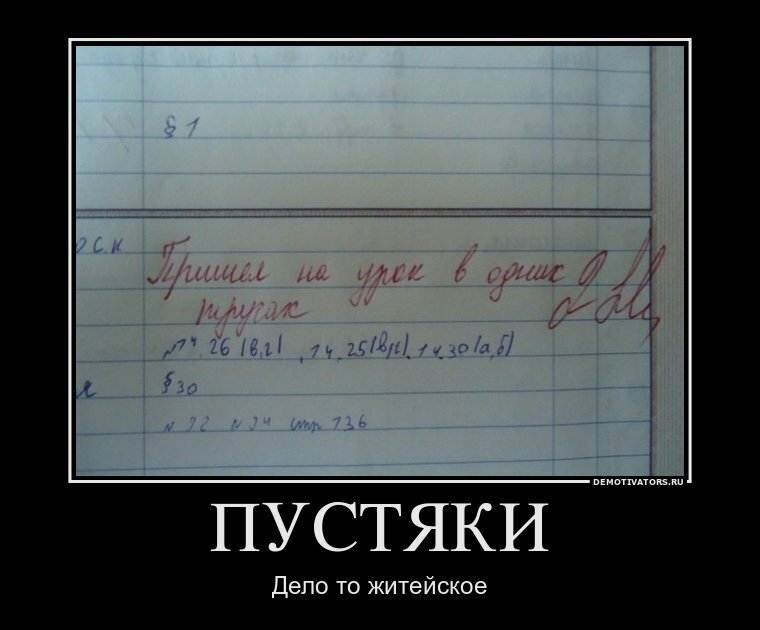 § 1
Пришел на урок в одних
трусах
№14.26 (в,г), 14.25(в,г), 14.30(а,б)
§30
стр 136
DEMOTIVATORS.RU
ПУСТЯКИ
Дело то житейское